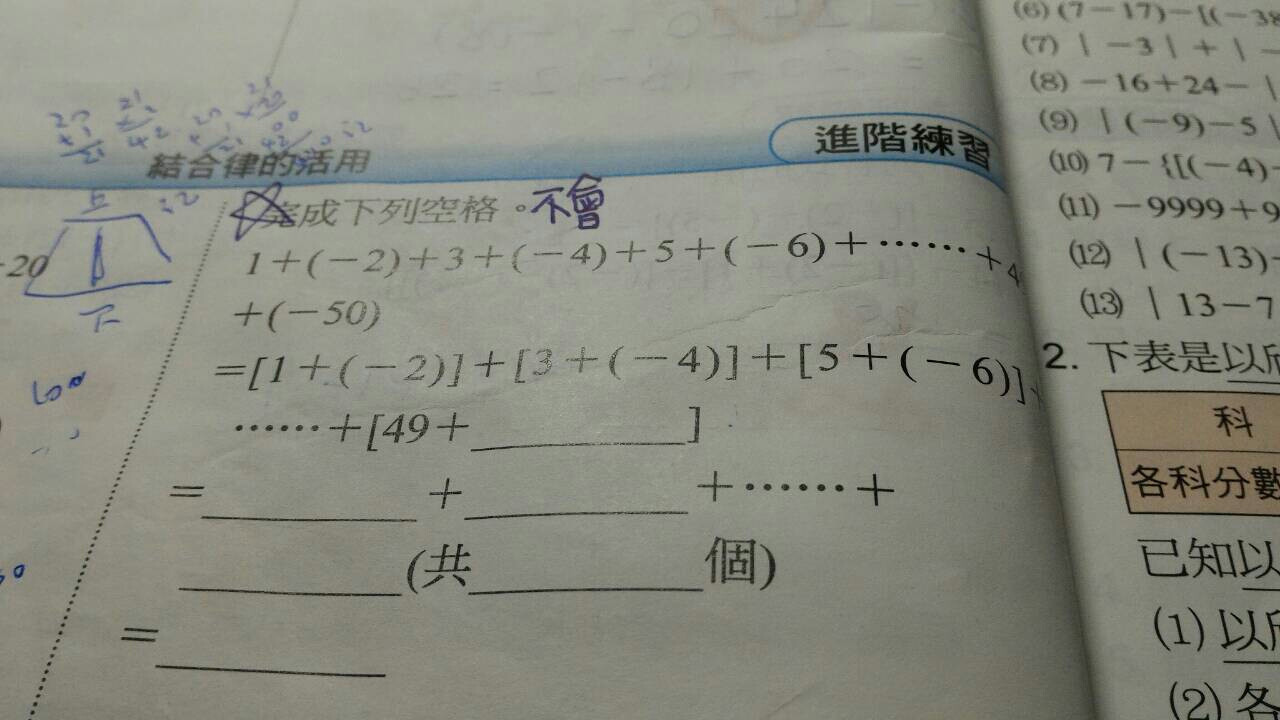 結合律的活用
進階練習
完成下列空格。不會
1+(-2)+3+(-4)+5+(-6)+……+4
+(-50)
=[1+(-2)]+[3+(-4)]+[5+(-6)]+
……+[49+______]
=______+______+……+
______(共______個)
=______
-20
上
12
下
(6) (7-17)-[(-38
(7) |-3|+|-
(8) -16+24-|
(9) |(-9)-5|
(10) 7-{[(-4)-
(11) -9999+9
(12) |(-13)-
(13) |13-7
2. 下表是以欣
科
各科分數
已知以
(1) 以欣
(2) 各